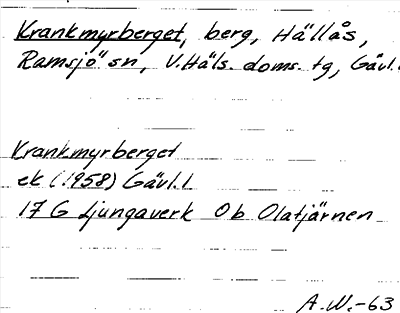 Krankmyrberget, berg, Hällås,
Ramsjö sn, V. Häls. doms. tg, Gävl.
Krankmyrberget
ek (1958) Gävl. l.
17 G Ljungaverk 0 b Olatjärnen
A.N.-63